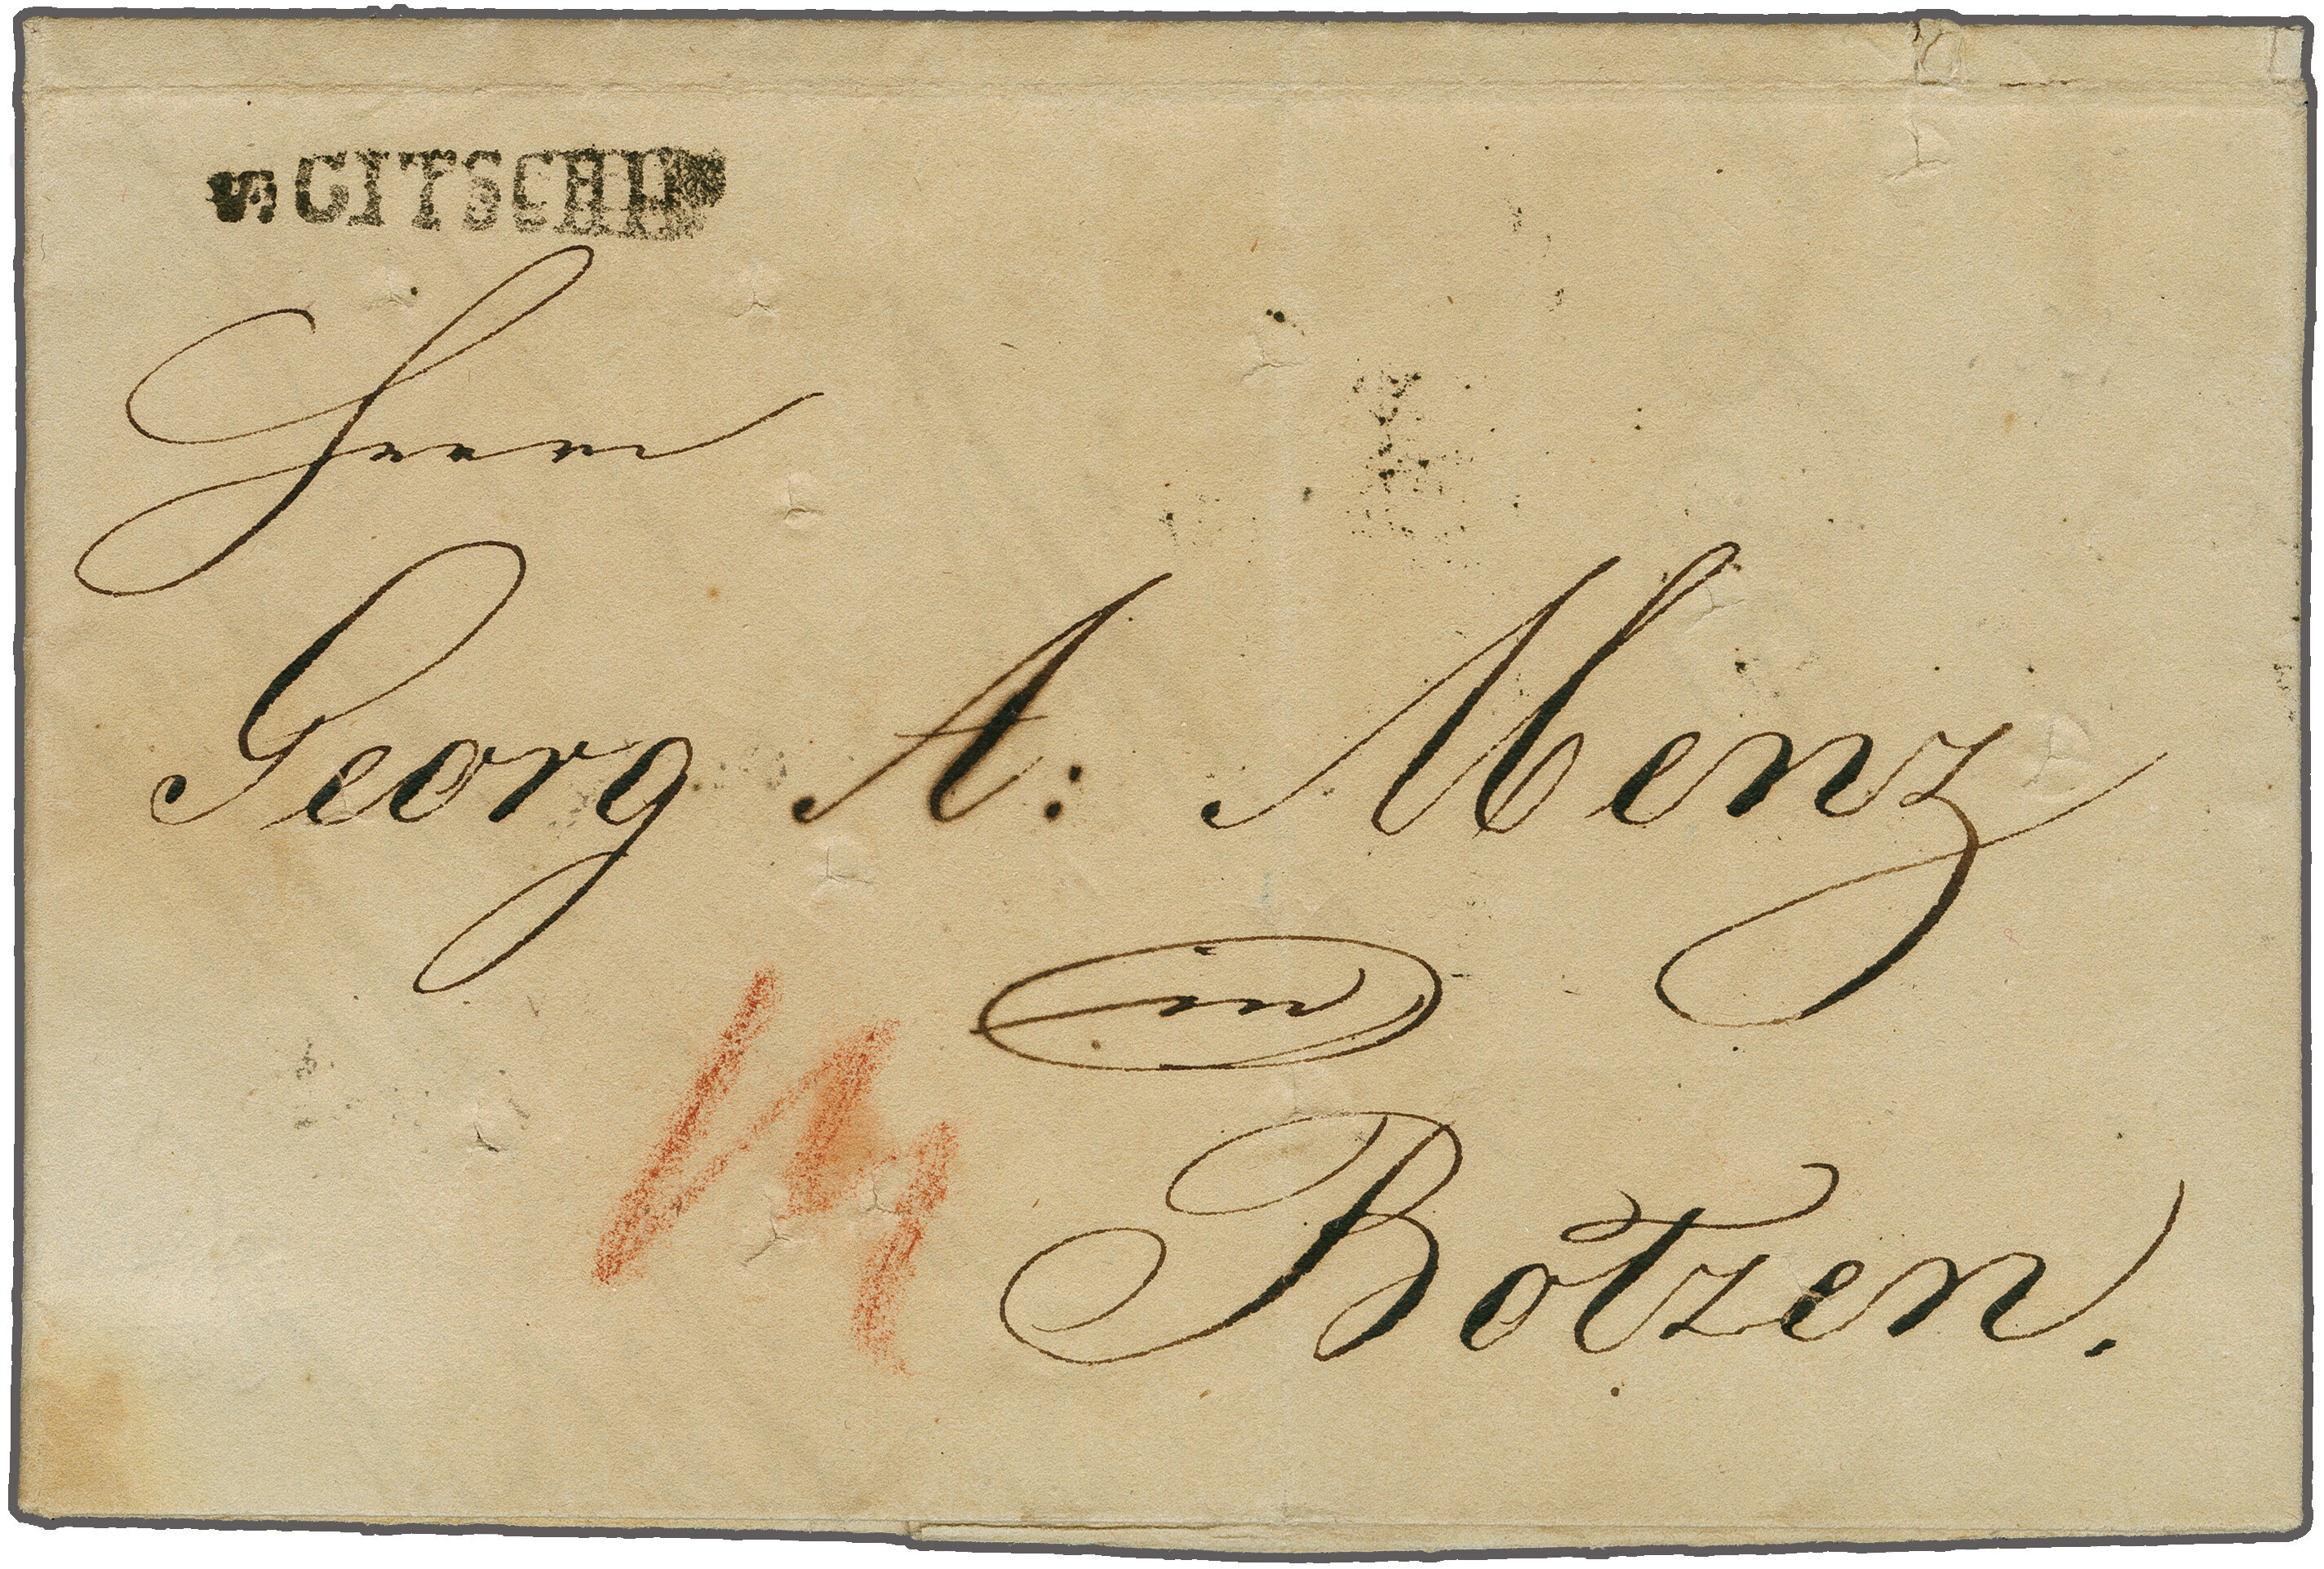 GITSCHIN
Herrn
Georg A: Menz
in
Botzen.